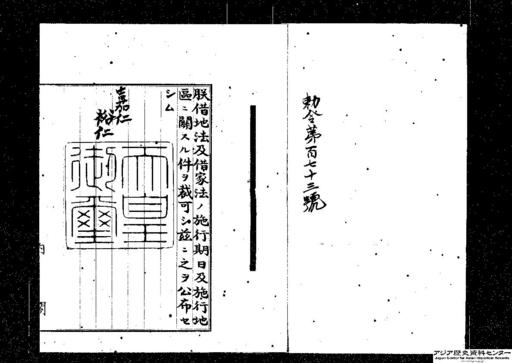 勅令第百七十三號
朕借地法及借家法ノ施行期日及施行地
區ニ關スル件ヲ裁可シ茲ニ之ヲ公布セ
シム
嘉仁
裕仁
天皇
御璽
内閣
アジア歴史資料センター
Japan Center for Asian Historical Records